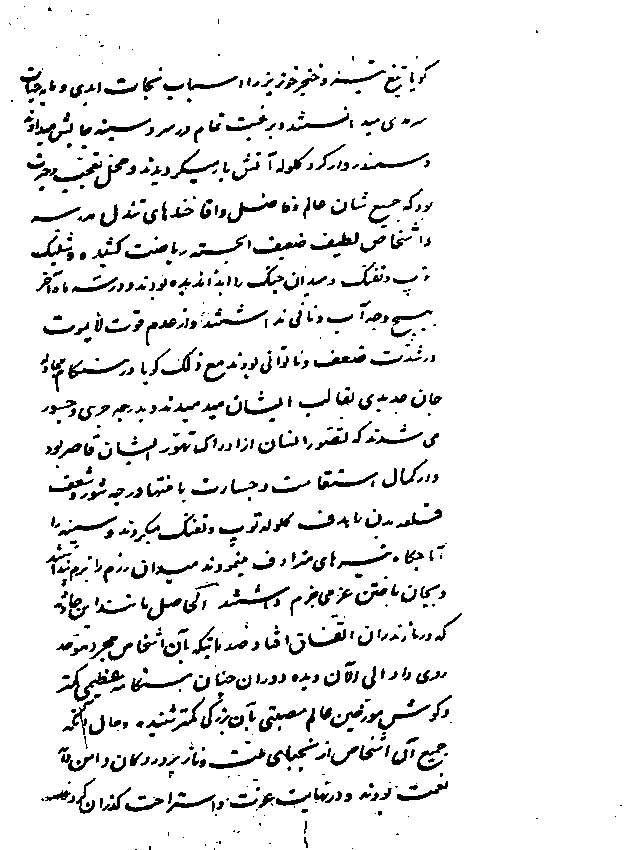 گویا تیغ تیز و خنجر خونریز را اسباب نجات ابدی و مایه حیات
سرمدی میدانستند و برغبت تمام در سر و سینه جایش میدادند
و سمندروار گرد گلوله آتش بار میگردیدند و محل تعجب و حیرت
بود که جمیع شان عالم و فاضل و اقا خندهای تندل مدرسه
و اشخاص لطیف ضعیف الجسته ریاضت کشیده و شلیک
توپ و تفنگ و میدان جنگ را ابدا ندیده بودند و در سه ماه آخر
بهیچ وجه آب و نانی نداشتند و از عدم قوت لایموت
در شدت ضعف و ناتوانی بودند مع ذلک گویا در هنگام مجادله
جان جدیدی بقالب ایشان میدمیدند و بدرجه جری و جسور
می شدند که تصور انسان از ادراک تهور ایشان قاصر بود
و در کمال استقامت و جسارت با منتها درجه شور و شعف
قطعه بدن را هدف گلوله توپ و تفنگ میکردند و سینه را
آماجگاه تیرهای مترادف مینمودند میدان رزم را بزم پنداشتند
و بجان باختن عزمی جزم داشتند الحاصل مانند این حادثه
که در مازندران اتفاق افتاد و صدماتیکه بآن اشخاص مجرد موحد
روی داد الی الآن دیده دوران چنان هنگامه عظیمی کمتر
و گوش مورخین عالم مصیبتی بآن بزرگی کمتر شنیده و حال آنکه
جمیع آن اشخاص از نجبای ملت و ناز پروردگان دامن
نعمت بودند و در نهایت عزت و استراحت گذران کرده